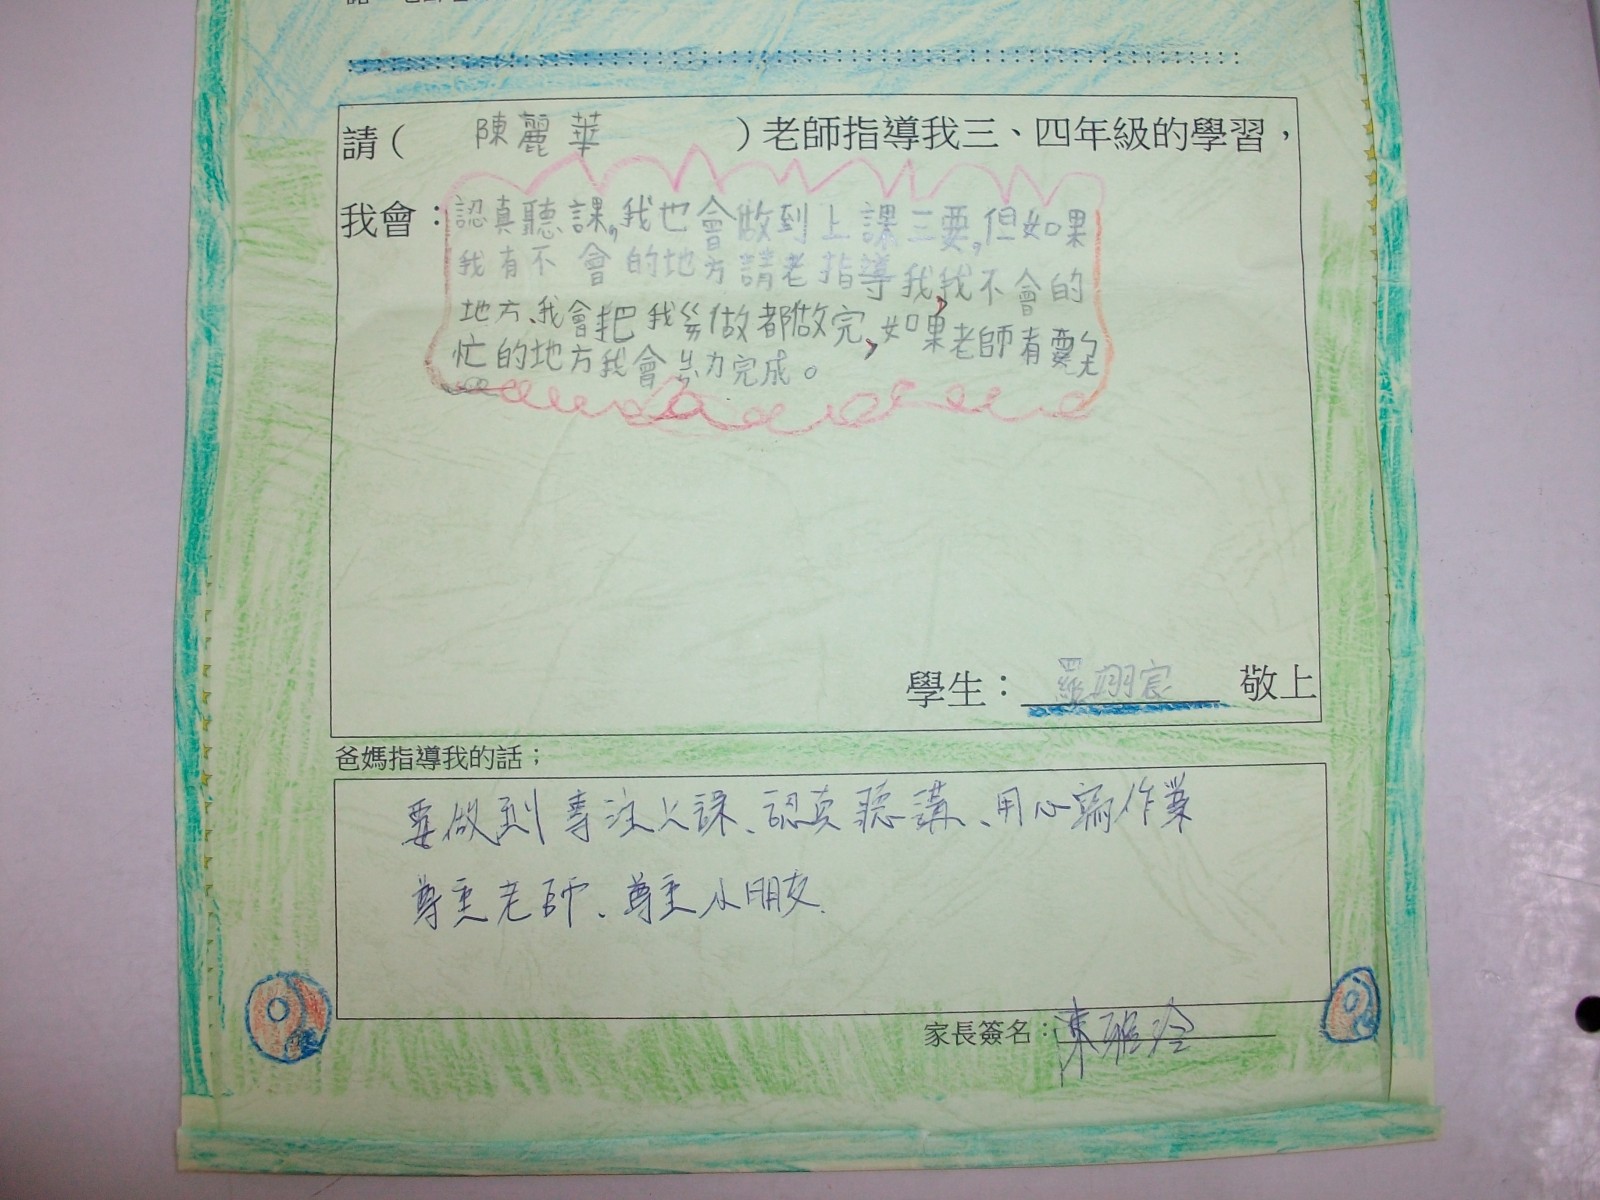 請( 陳麗華 )老師指導我三、四年級的學習，
我會：認真聽課,我也會做到上課三要,但如果
我有不會的地方請老指導我,我不會的
地方、我會把我ㄠ做都做完,如果老師有要ㄅ
忙的地方我會努力完成。
學生： 羅翊宸 敬上
爸媽指導我的話；
要做到專注上課、認真聽講、用心寫作業
尊重老師、尊重小朋友.
家長簽名：陳雅玲